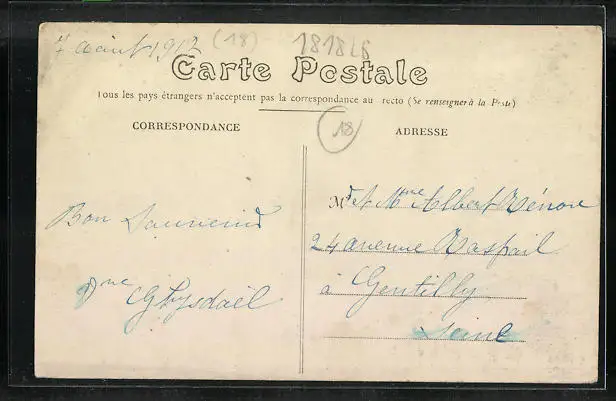 7 aout 1912 (18) 1818L6
Carte Postale
Tous les pays étrangers n'acceptent pas la correspondance au recto (Se renseigner à la Poste)
CORRESPONDANCE
18
ADRESSE
Bon Souvenir
Mme
M et Mme Albert
24 avenue Raspail
à Gentilly
Seine